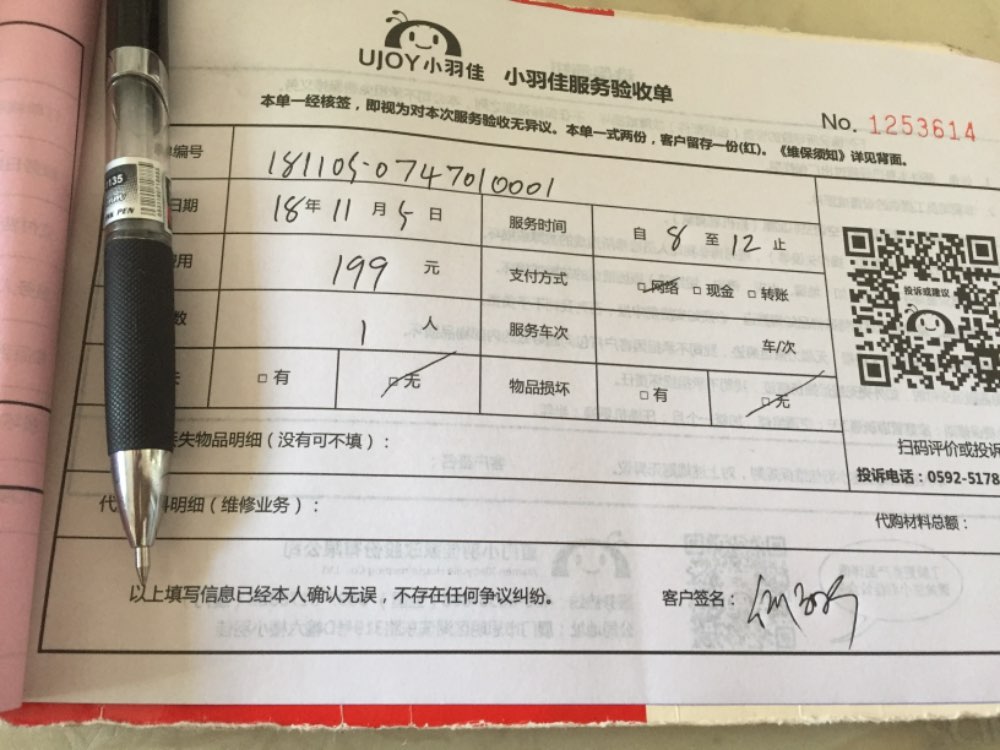 UJOY小羽佳 小羽佳服务验收单
本单一经核签，即视为对本次服务验收无异议。本单一式两份，客户留存一份(红)。《维保须知》详见背面。
No. 1253614
编号 181105-0747010001
日期 18年11月5日 服务时间 自8至12止
用 199 元 支付方式 □网络 □现金 □转账
数 1 人 服务车次 车/次
□有 □无 物品损坏 □有 □无
投诉或建议
扫码评价或投诉
投诉电话：0592-5178
失物品明细（没有可不填）：
代 料明细（维修业务）：
代购材料总额：
以上填写信息已经本人确认无误，不存在任何争议纠纷。 客户签名：
135
PEN